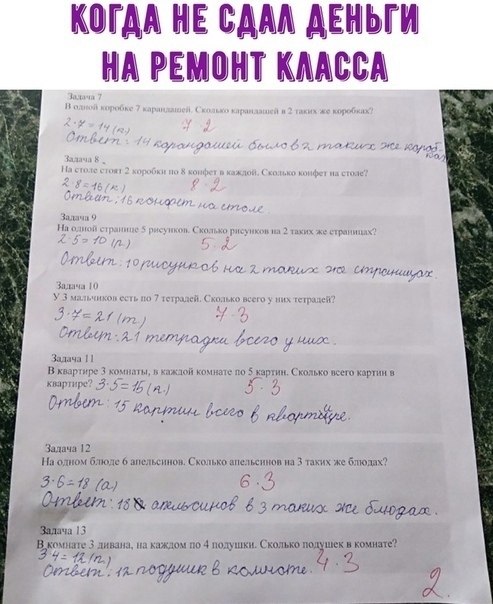 КОГДА НЕ СДАЛ ДЕНЬГИ
НА РЕМОНТ КЛАССА
Задача 7
В одной коробке 7 карандашей. Сколько карандашей в 2 таких же коробках?
2·7=14(к) 7·2
Ответ: 14 карандашей было в 2 таких же коробках
Задача 8
На столе стоят 2 коробки по 8 конфет в каждой. Сколько конфет на столе?
2·8=16(к) 8·2
Ответ: 16 конфет на столе.
Задача 9
На одной странице 5 рисунков. Сколько рисунков на 2 таких же страницах?
2·5=10(р) 5·2
Ответ: 10 рисунков на 2 таких же страницах.
Задача 10
У 3 мальчиков есть по 7 тетрадей. Сколько всего у них тетрадей?
3·7=21(т) 7·3
Ответ: 21 тетрадки всего у них.
Задача 11
В квартире 3 комнаты, в каждой комнате по 5 картин. Сколько всего картин в
квартире? 3·5=15(к.) 5·3
Ответ: 15 картин всего в квартире.
Задача 12
На одном блюде 6 апельсинов. Сколько апельсинов на 3 таких же блюдах?
3·6=18(а) 6·3
Ответ: 18 апельсинов в 3 таких же блюдах.
Задача 13
В комнате 3 дивана, на каждом по 4 подушки. Сколько подушек в комнате?
3·4=12(п.) 4·3
Ответ: 12 подушек в комнате.
2.